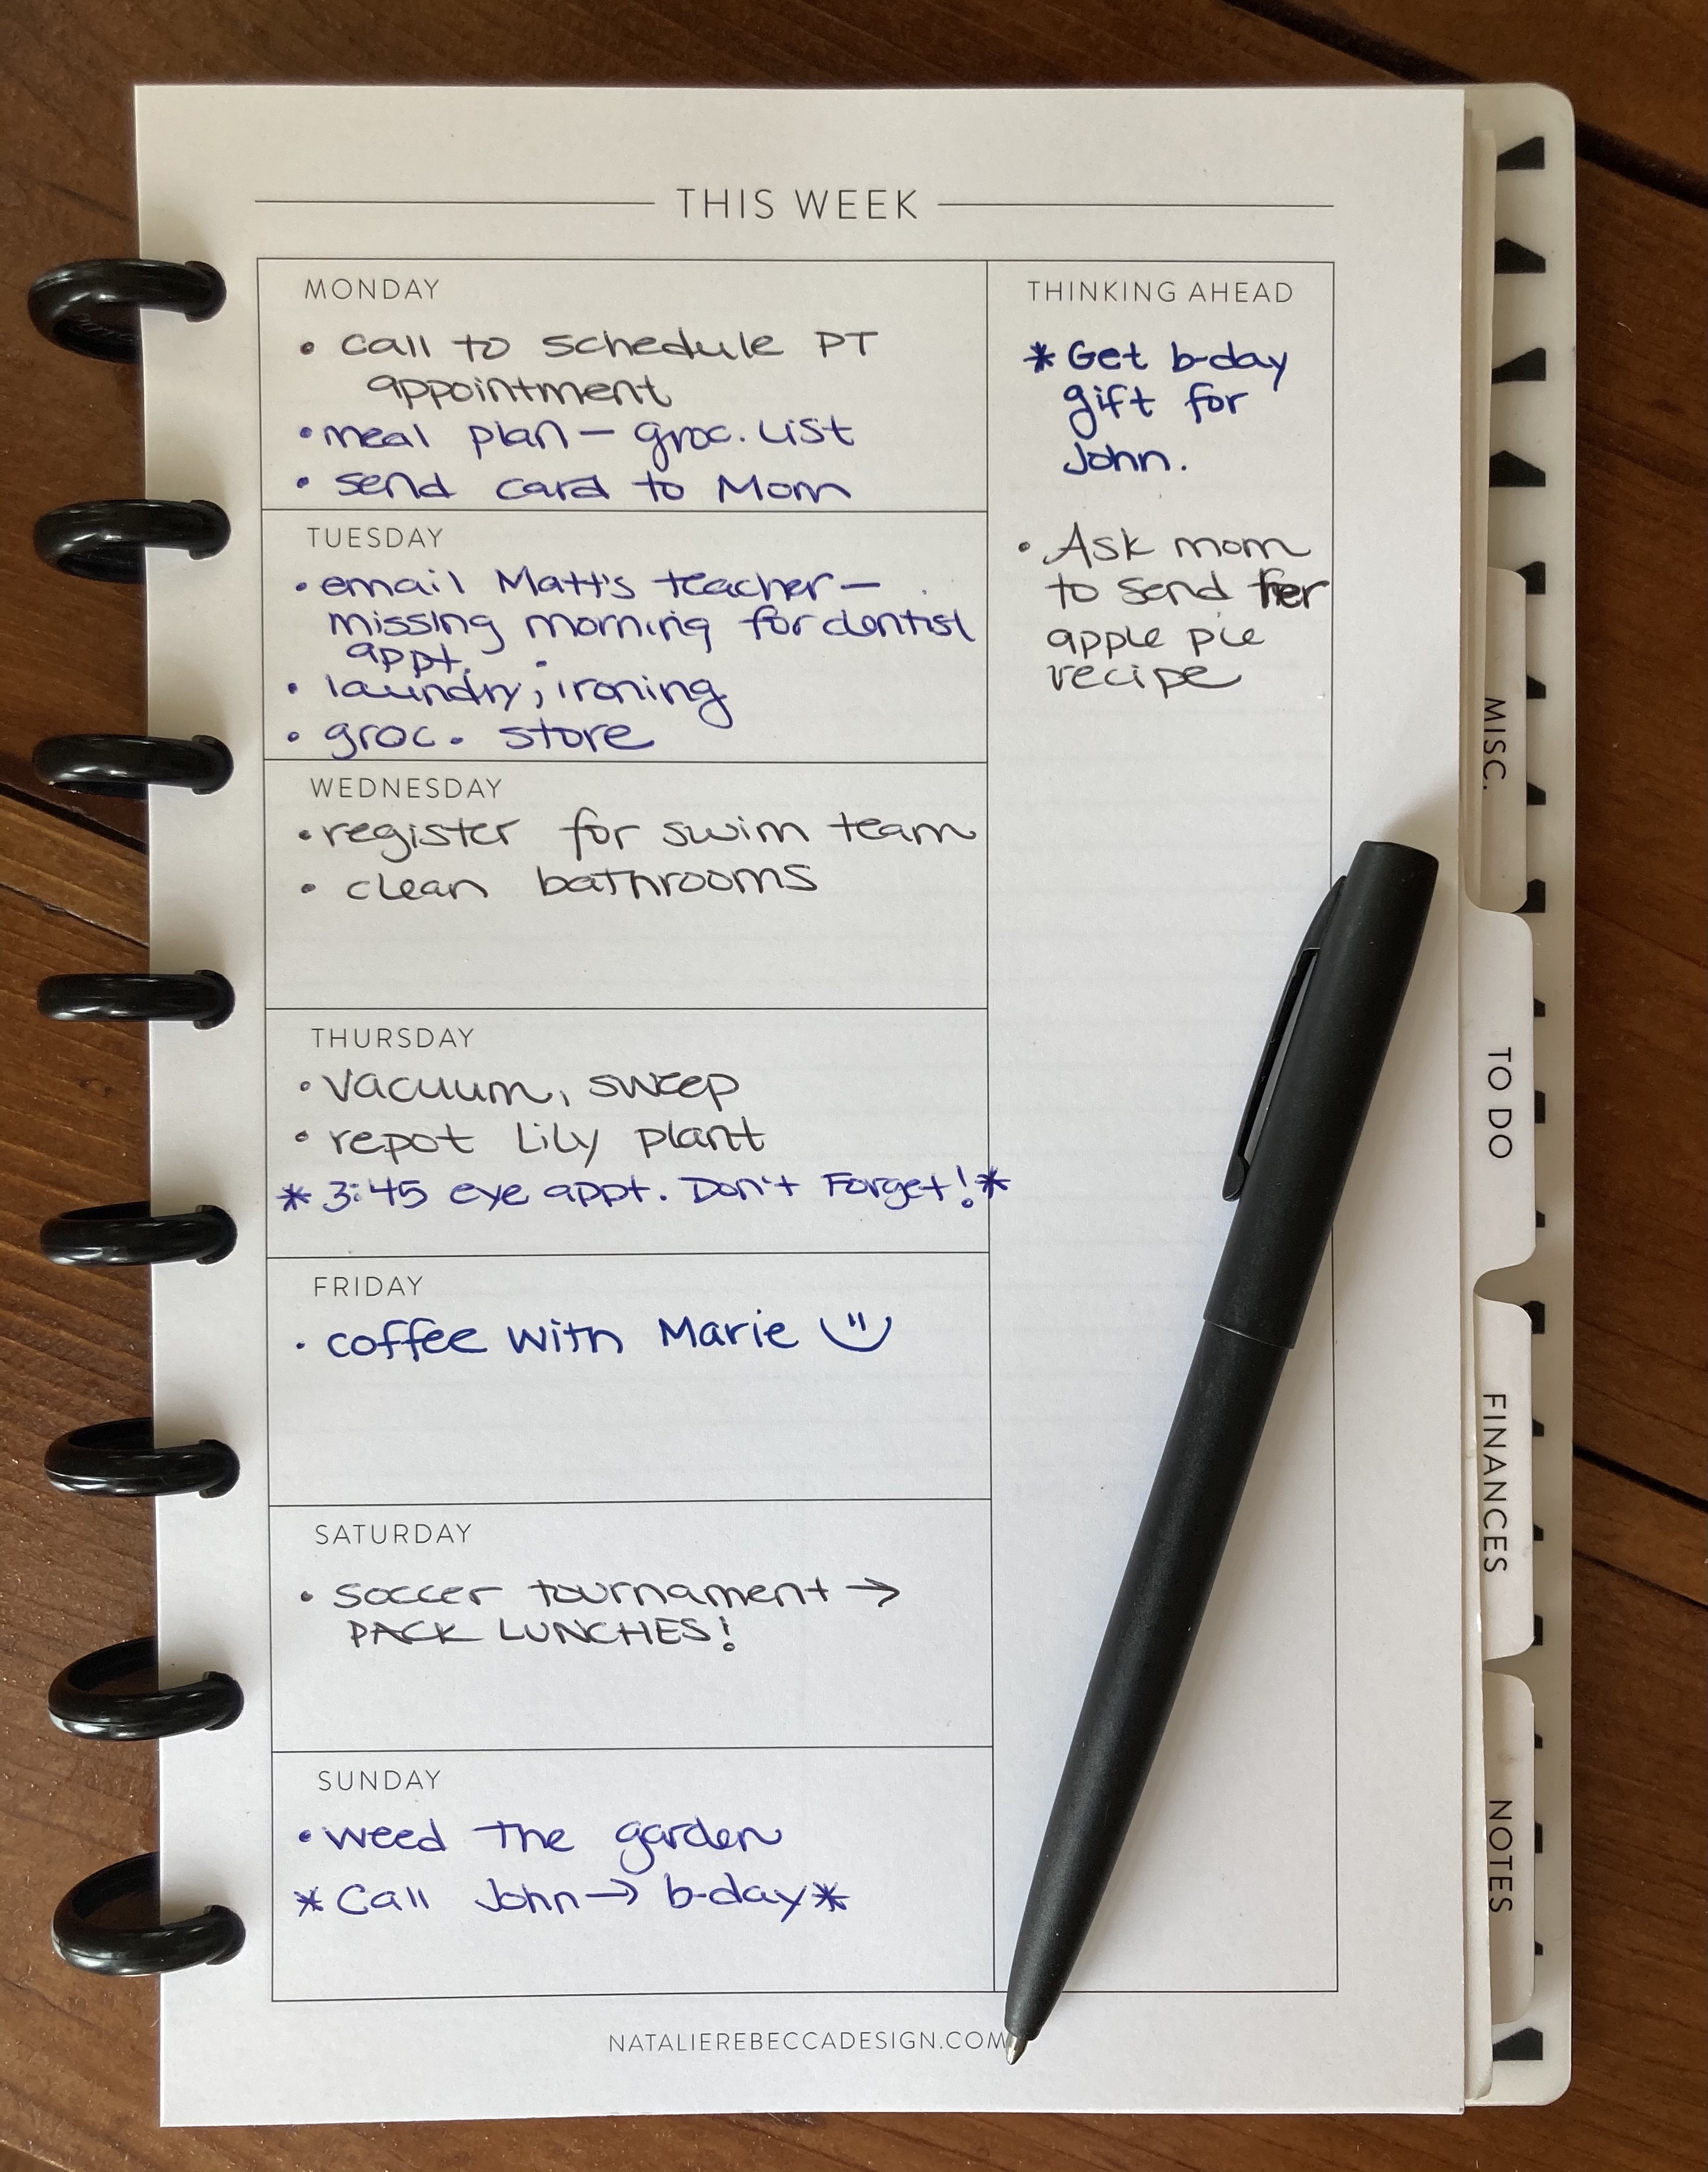 THIS WEEK
MONDAY
• call to schedule PT
appointment
• meal plan — groc. list
• send card to Mom
TUESDAY
• email Matt's teacher —
missing morning for dentist
appt.
• laundry, ironing
• groc. store
WEDNESDAY
• register for swim team
• clean bathrooms
THURSDAY
• vacuum, sweep
• repot Lily plant
* 3:45 eye appt. Don't Forget! *
FRIDAY
• coffee with Marie
SATURDAY
• soccer tournament →
PACK LUNCHES!
SUNDAY
• weed the garden
* Call John → b-day *
THINKING AHEAD
* Get b-day
gift for
John.
• Ask mom
to send her
apple pie
recipe
NATALIEREBECCADESIGN.COM
MISC.
TO DO
FINANCES
NOTES